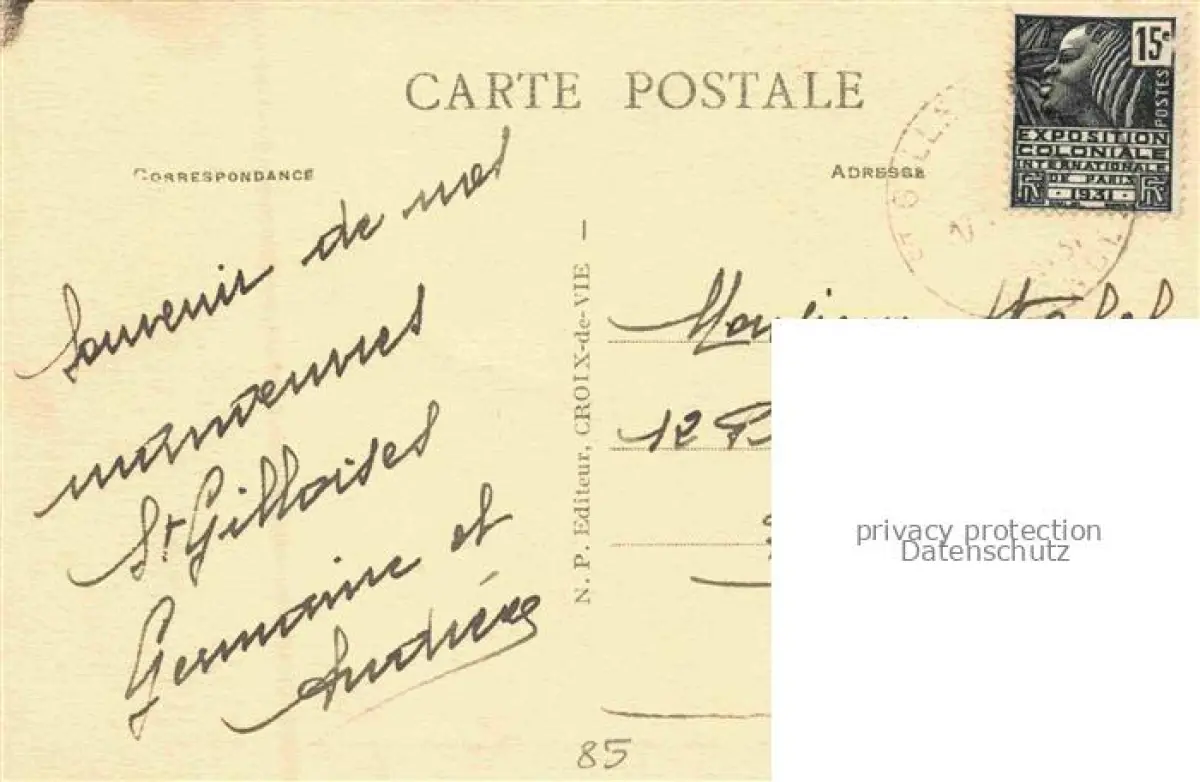 CARTE POSTALE
CORRESPONDANCE
ADRESSE
15c
POSTES
EXPOSITION
COLONIALE
INTERNATIONALE
DE PARIS
RF 1931 RF
ST GILLES
Souvenir de mes
manœuvres
St Gilloises
Germaine et
N. P. Editeur, CROIX-de-VIE —
Monsieur
12
privacy protection
Datenschutz
85